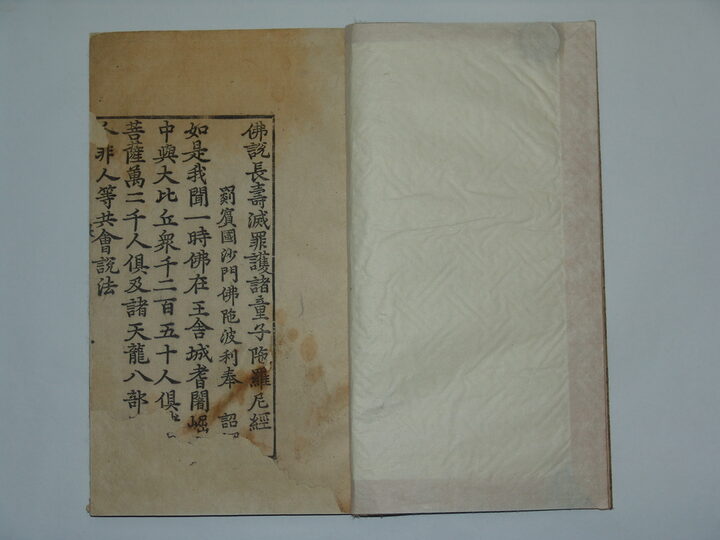 佛說長壽滅罪護諸童子陁羅尼經
罽賓國沙門佛陁波利奉 詔
如是我聞一時佛在王舍城耆闍崛
中與大比丘衆千二百五十人俱
菩薩萬二千人俱及諸天龍八部
人非人等共會說法